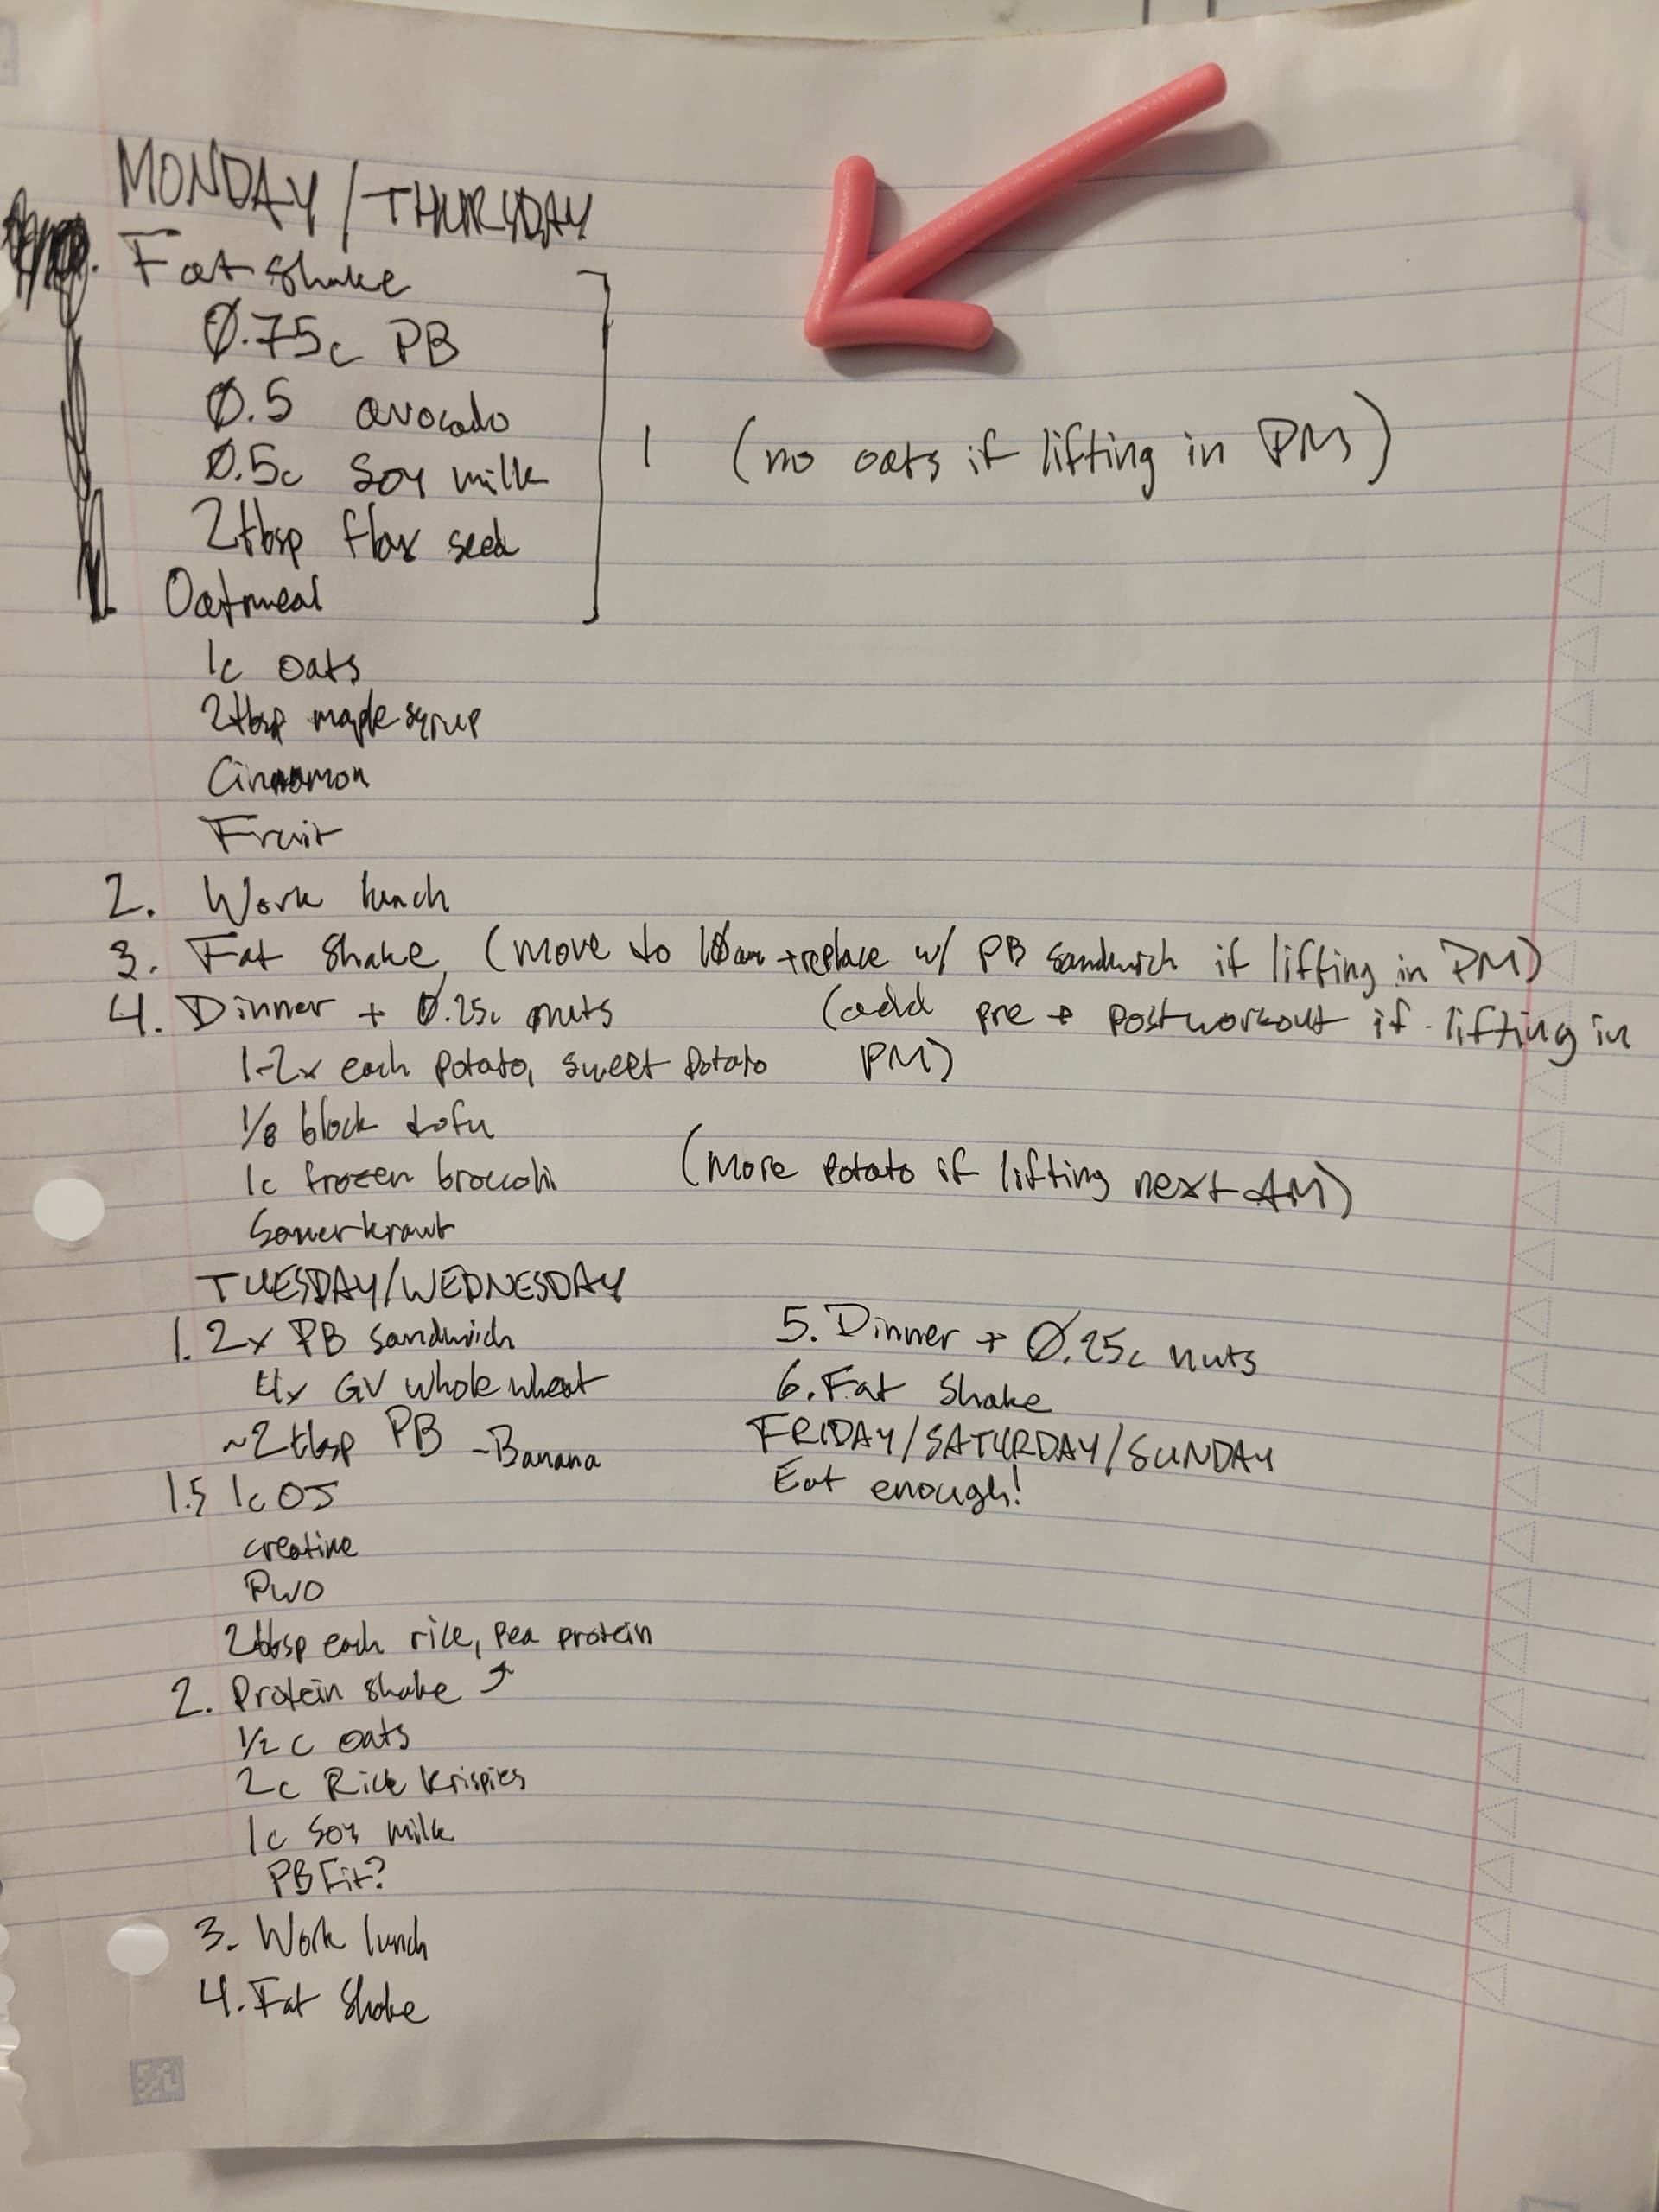 MONDAY/THURSDAY
Fat shake
0.75c PB
0.5 avocado
0.5c Soy milk
2tbsp flax seed
Oatmeal
1 (no oats if lifting in PM)
1c oats
2tbsp maple syrup
Cinnamon
Fruit
2. Work lunch
3. Fat Shake (move to 10am + replace w/ PB sandwich if lifting in PM)
4. Dinner + 0.25c nuts (add pre + postworkout if lifting in PM)
1-2x each potato, sweet potato
1/8 block tofu
1c frozen broccoli (more potato if lifting next AM)
Sauerkraut
TUESDAY/WEDNESDAY
1. 2x PB sandwich
4x GV whole wheat
~2tbsp PB -Banana
1.5 1c OJ
creatine
PWO
2tbsp each rice, pea protein
2. Protein shake
1/2 c oats
2c Rice Krispies
1c Soy milk
PBFit?
3. Work lunch
4. Fat Shake
5. Dinner + 0.25c nuts
6. Fat Shake
FRIDAY/SATURDAY/SUNDAY
Eat enough!